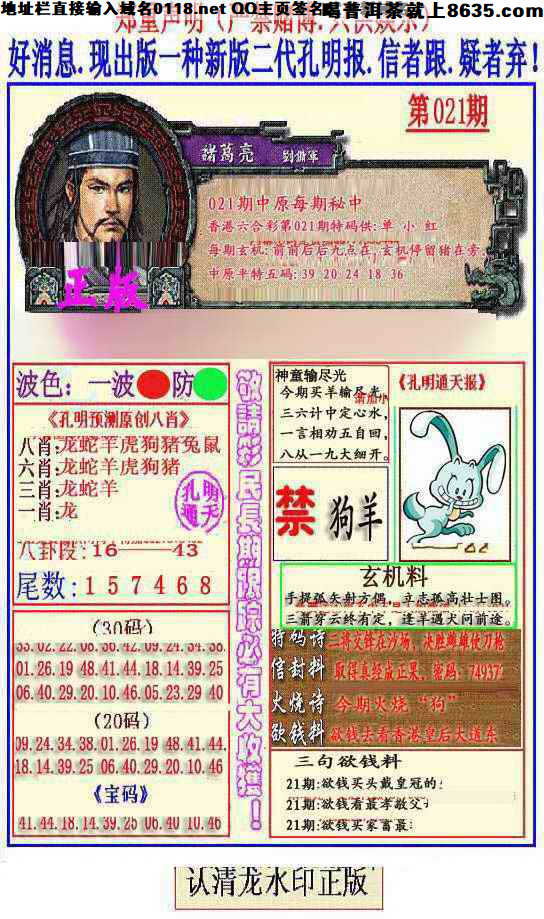 地址栏直接输入域名0118.net QQ主页签名
喝普洱茶就上8635.com
郑重声明(严禁赌博.只供娱乐)
好消息.现出版一种新版二代孔明报.信者跟.疑者弃!
第021期
諸葛亮 劉備軍
021期中原每期秘中
香港六合彩第021期特码供:单 小 红
每期玄机:前前后后九点在,玄机停留猪在旁.
中原平特五码:39 20 24 18 36
正版
波色:一波 防
《孔明预测原创八肖》
八肖:龙蛇羊虎狗猪兔鼠
六肖:龙蛇羊虎狗猪
三肖:龙蛇羊
一肖:龙
孔明通天
八卦段:16——43
尾数:157468
敬請彩民長期跟踪必有大收獲!
神童输尽光
今期买羊输尽光,
三六计中定心水,
一言相劝五自回,
八从一九大细开。
《孔明通天报》
禁 狗羊
玄机料
手提弧矢射方偶,立志孤高壮士图。
三箭穿云终有定,逢羊遇火问前途。
特码诗 三将交锋在沙场,决胜雌雄使刀枪
信封料 取得真经成正果,密码:74937
火烧诗 今期火烧“狗”
欲钱料 欲钱去看香港皇后大道东
(30码)
33.02.22.08.30.42.09.24.34.38.
01.26.19.48.41.44.18.14.39.25
06.40.29.20.10.46.05.23.29.40
(20码)
09.24.34.38.01.26.19.48.41.44.
18.14.39.25.06.40.29.20.10.46
《宝码》
41.44.18.14.39.25 06.40 10.46
三句欲钱料
21期:欲钱买头戴皇冠的
21期:欲钱看最孝敬父
21期:欲钱买家富最
认清龙水印正版